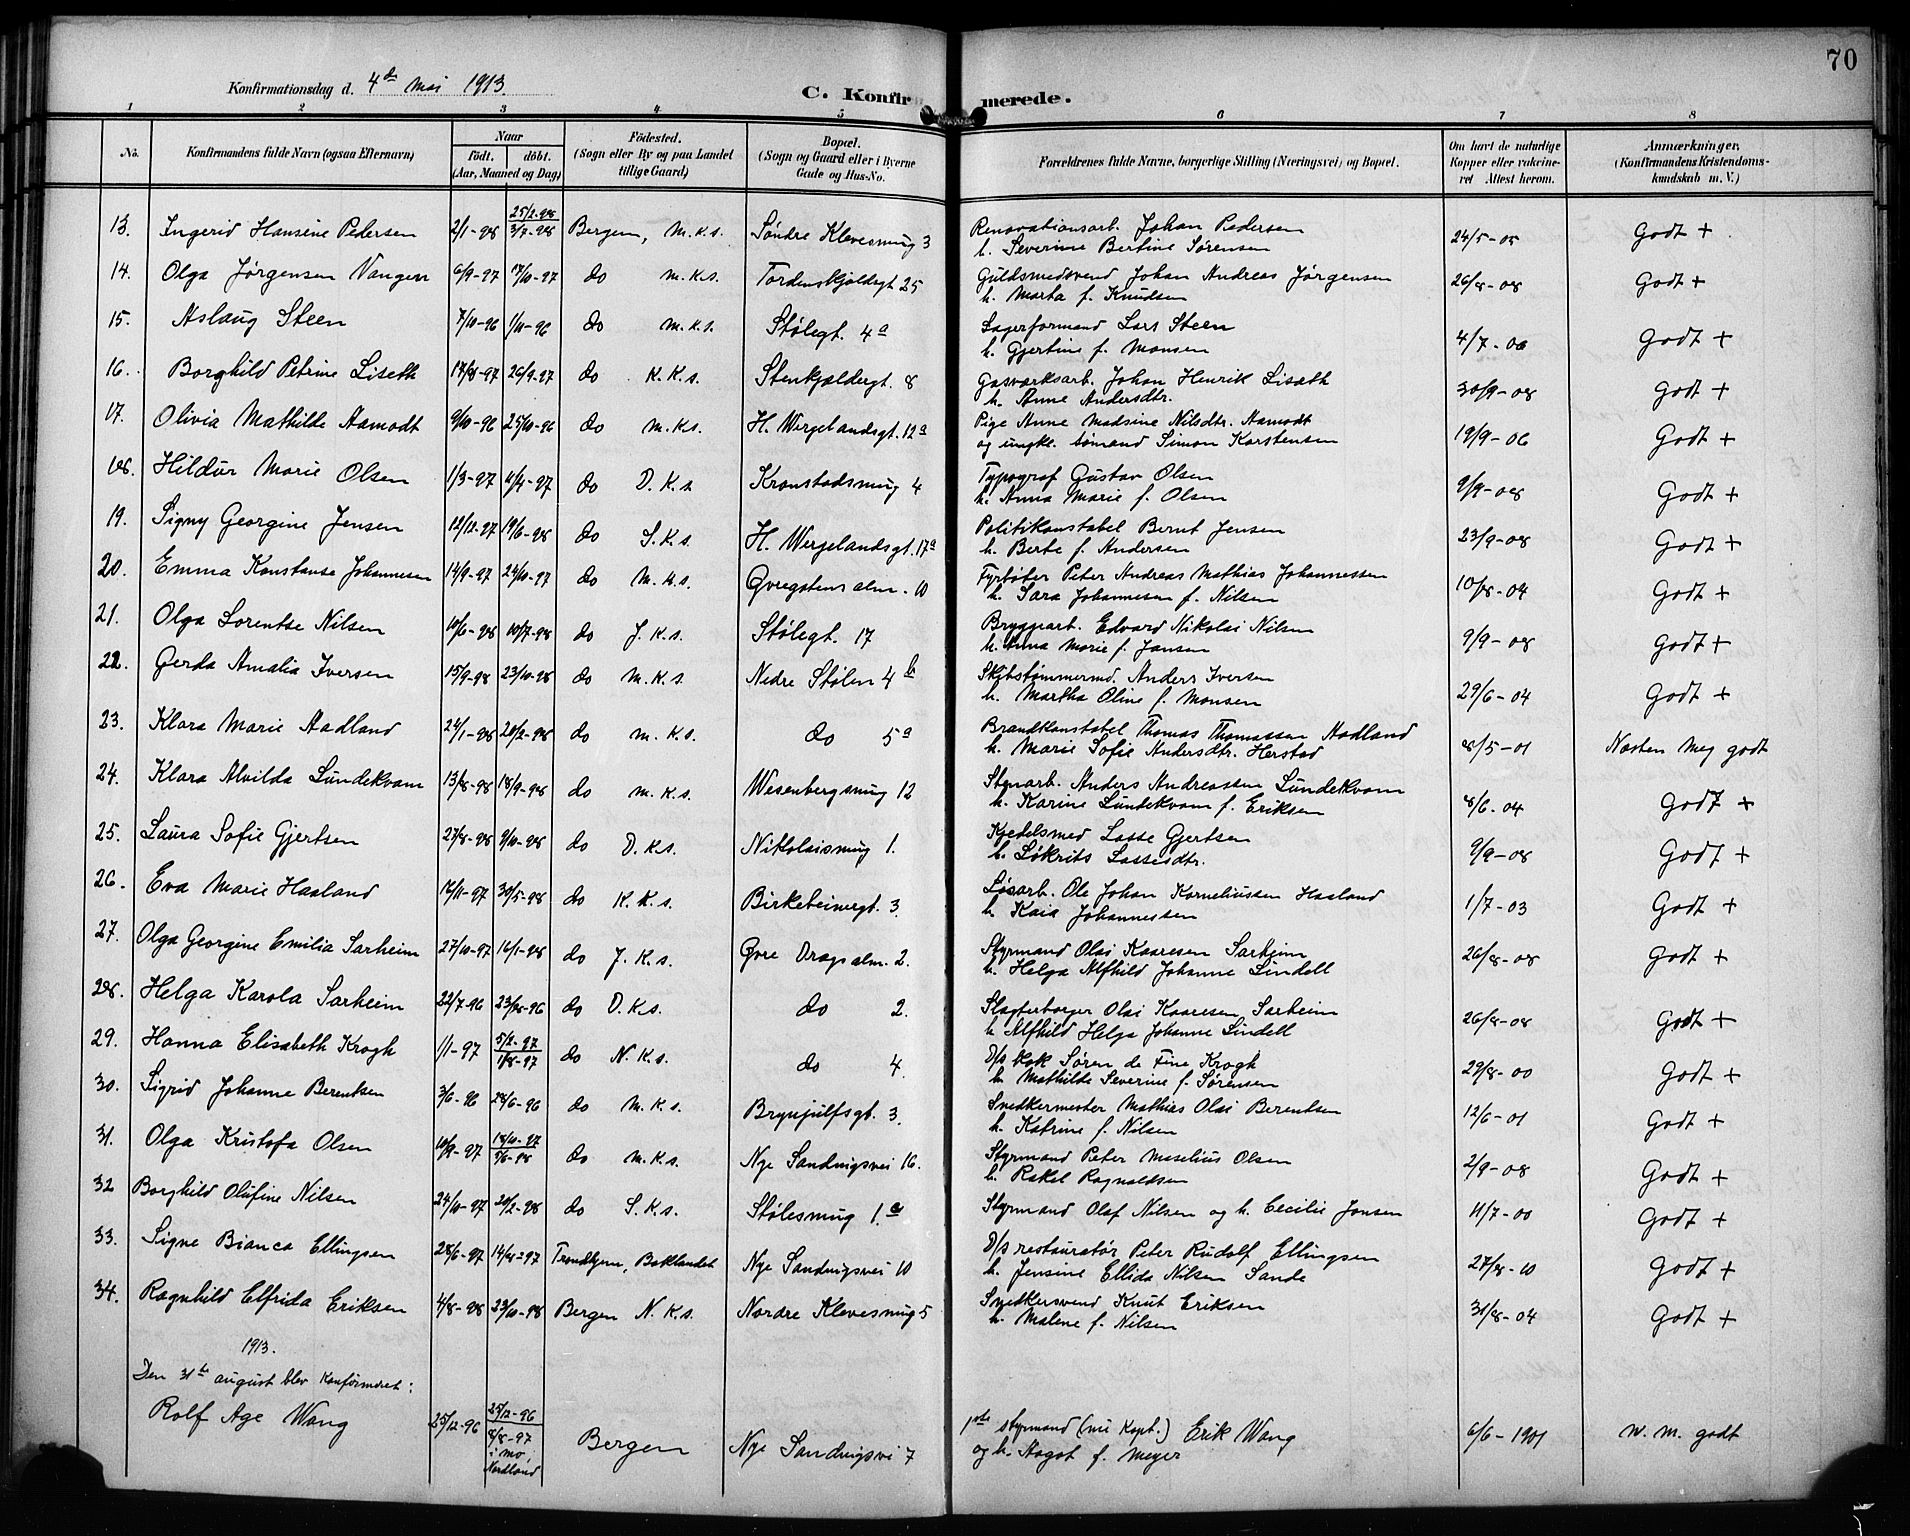 70
Konfirmationsdag d. 4de Mai 1913.
C. Konfirmerede.
1 2 3 4 5 6 7 8
No. Konfirmandens fulde Navn (ogsaa Efternavn) Naar født. døbt. (Aar, Maaned og Dag) Fødested. (Sogn eller By og paa Landet tillige Gaard) Bopæl. (Sogn og Gaard eller i Byerne Gade og Hus-No. Forældrenes fulde Navne, borgerlige Stilling (Næringsvei) og Bopæl. Om havt de naturlige Kopper eller vakcineret Attest herom. Anmærkninger. (Konfirmandens Kristendomskundskab m. V.)
13. Ingerid Hansine Pedersen 2/1-98 25/2-98 3/7-98 Bergen, M.K.s. Søndre Klevesmug 3 Renovationsarb. Johan Pedersen
h. Severine Bertine Sørensen 24/5-05 Godt +
14. Olga Jørgensen Vangen 6/9-97 17/10-97 do M.K.s. Tordenskjoldsgt 25 Guldsmedsvend Johan Andreas Jørgensen
h. Marta f. Knudsen 26/8-08 Godt +
15. Aslaug Steen 7/10-96 1/11-96 do M.K.s. Stølegt. 4a Lagerformand Lars Steen
h. Gjertine f. Monsen 4/7-06 Godt +
16. Borghild Petrine Liseth 17/8-97 26/9-97 do K.K.s. Stenkjeldergt. 8 Gasværksarb. Johan Henrik Liseth
h. Anne Andersdtr. 30/9-08 Godt +
17. Olivia Mathilde Aamodt 9/10-96 25/10-96 do M.K.s. H. Wergelandsgt. 12a Pige Anne Madsine Nilsdtr. Aamodt
og ungk. sømand Simon Karstensen 19/9-06 Godt +
18. Hildur Marie Olsen 1/3-97 4/4-97 do D.K.s. Kronstadsmug 4 Typograf Gustav Olsen
h. Anna Marie f. Olsen 9/9-08 Godt +
19. Signy Georgine Jensen 12/12-97 19/6-98 do S.K.s. H. Wergelandsgt. 17a Politikonstabel Bernt Jensen
h. Berte f. Andersen 23/9-08 Godt +
20. Emma Konstanse Johannesen 14/9-97 24/10-97 do M.K.s. Øvregatens alm. 10 Fyrbøter Peter Andreas Mathias Johannessen
h. Sara Johannesen f. Nilsen 10/8-04 Godt +
21. Olga Lorentse Nilsen 10/6-98 10/7-98 do J.K.s. Stølegt. 17 Bryggearb. Edvard Nikolai Nilsen
h. Anna Marie f. Jansen 9/9-08 Godt +
22. Gerda Amalia Iversen 15/9-98 23/10-98 do M.K.s. Nedre Stølen 4b Skibstømmermd. Anders Iversen
h. Martha Oline f. Monsen 29/6-04 Godt +
23. Klara Marie Aadland 24/1-98 20/2-98 do M.K.s. do 5a Brandkonstabel Thomas Thomassen Aadland
h. Marie Sofie Andersdtr. Herstad 8/5-01 Næsten meg godt
24. Klara Alvilda Lundekvam 13/8-98 18/9-98 do M.K.s. Wesenbergsmug 12 Styrarb. Anders Andreassen Lundekvam
h. Karine Lundekvam f. Eriksen 8/6-04 Godt +
25. Laura Sofie Gjertsen 27/8-98 9/10-98 do D.K.s. Nikolaismug 1. Kjedelsmed Lasse Gjertsen
h. Lassesdtr. 9/9-08 Godt +
26. Eva Marie Haaland 17/11-97 30/5-98 do K.K.s. Birkebeinergt. 3. Løsarb. Ole Johan Korneliussen Haaland
h. Kaia Johannessen 1/7-03 Godt +
27. Olga Georgine Emilia Sarheim 27/10-97 16/1-98 do J.K.s. Øvre Dragsalm. 2. Styrmand Olai Kaaresen Sarheim
h. Helga Alfhild Johanne Lindell 26/8-08 Godt +
28. Helga Karola Sarheim 22/7-96 23/8-96 do D.K.s. do 2. Slagterborger Olai Kaaresen Sarheim
h. Alfhild Helga Johanne Lindell 26/8-08 Godt +
29. Hanna Elisabeth Krogh 1/1-97 5/2-97 1/8-97 do N.K.s. do 4. D/s kok Søren de Fine Krogh
h. Mathilde Severine f. Sørensen 29/8-00 Godt +
30. Sigrid Johanne Berentsen 3/6-96 28/6-96 do M.K.s. Brynjulfsgt. 3. Snedkermester Mathias Olai Berentsen
h. Katrine f. Nilsen 12/6-01 Godt +
31. Olga Kristofa Olsen 10/9-97 18/10-97 5/6-98 do M.K.s. Nye Sandvigsvei 16. Styrmand Peter Maselius Olsen
h. Rakel Ragnaldsen 2/9-08 Godt +
32 Borghild Olufine Nilsen 24/10-97 20/2-98 do S.K.s. Stølesmug 1.a Styrmand Olaf Nilsen og h. Cecilie Jansen 11/7-00 Godt +
33. Signe Bianca Ellingsen 28/6-97 14/8-97 Trondhjem, Baklandet Nye Sandvigsvei 10 D/s restauratør Peter Rudolf Ellingsen
h. Jensine Ellida Nilsen Sande 27/8-10 Godt +
34. Ragnhild Elfrida Eriksen 4/8-98 23/10-98 Bergen N.K.s. Nordre Klevesmug 5 Snedkersvend Knut Eriksen
h. Malene f. Nilsen 31/8-04 Godt +
1913.
Den 31te august blev konfirmeret:
Rolf Age Wang 25/12-96 25/12-96 8/8-97 i Mo, Nordland Bergen Nye Sandvigsvei 7 1ste styrmand (nu Kapt.) Erik Wang
og h. Aagot f. Meyer 6/6-1901 N. M. godt